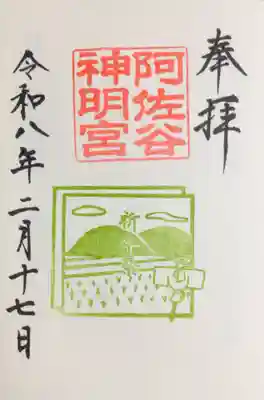 奉拝
阿佐谷
神明宮
令和八年二月十七日